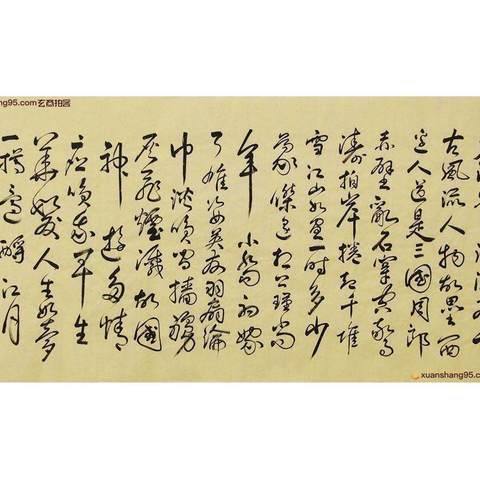 古風流人物故壘西
邊人道是三國周郎
赤壁亂石穿空驚
濤拍岸捲起千堆
雪江山如畫一時多少
豪傑遙想公瑾當
年小喬初嫁
了雄姿英發羽扇綸
巾談笑間檣櫓
灰飛煙滅故國
神遊多情
應笑我早生
華髮人生如夢
一樽還酹江月
ng95.com
xuanshang95.c